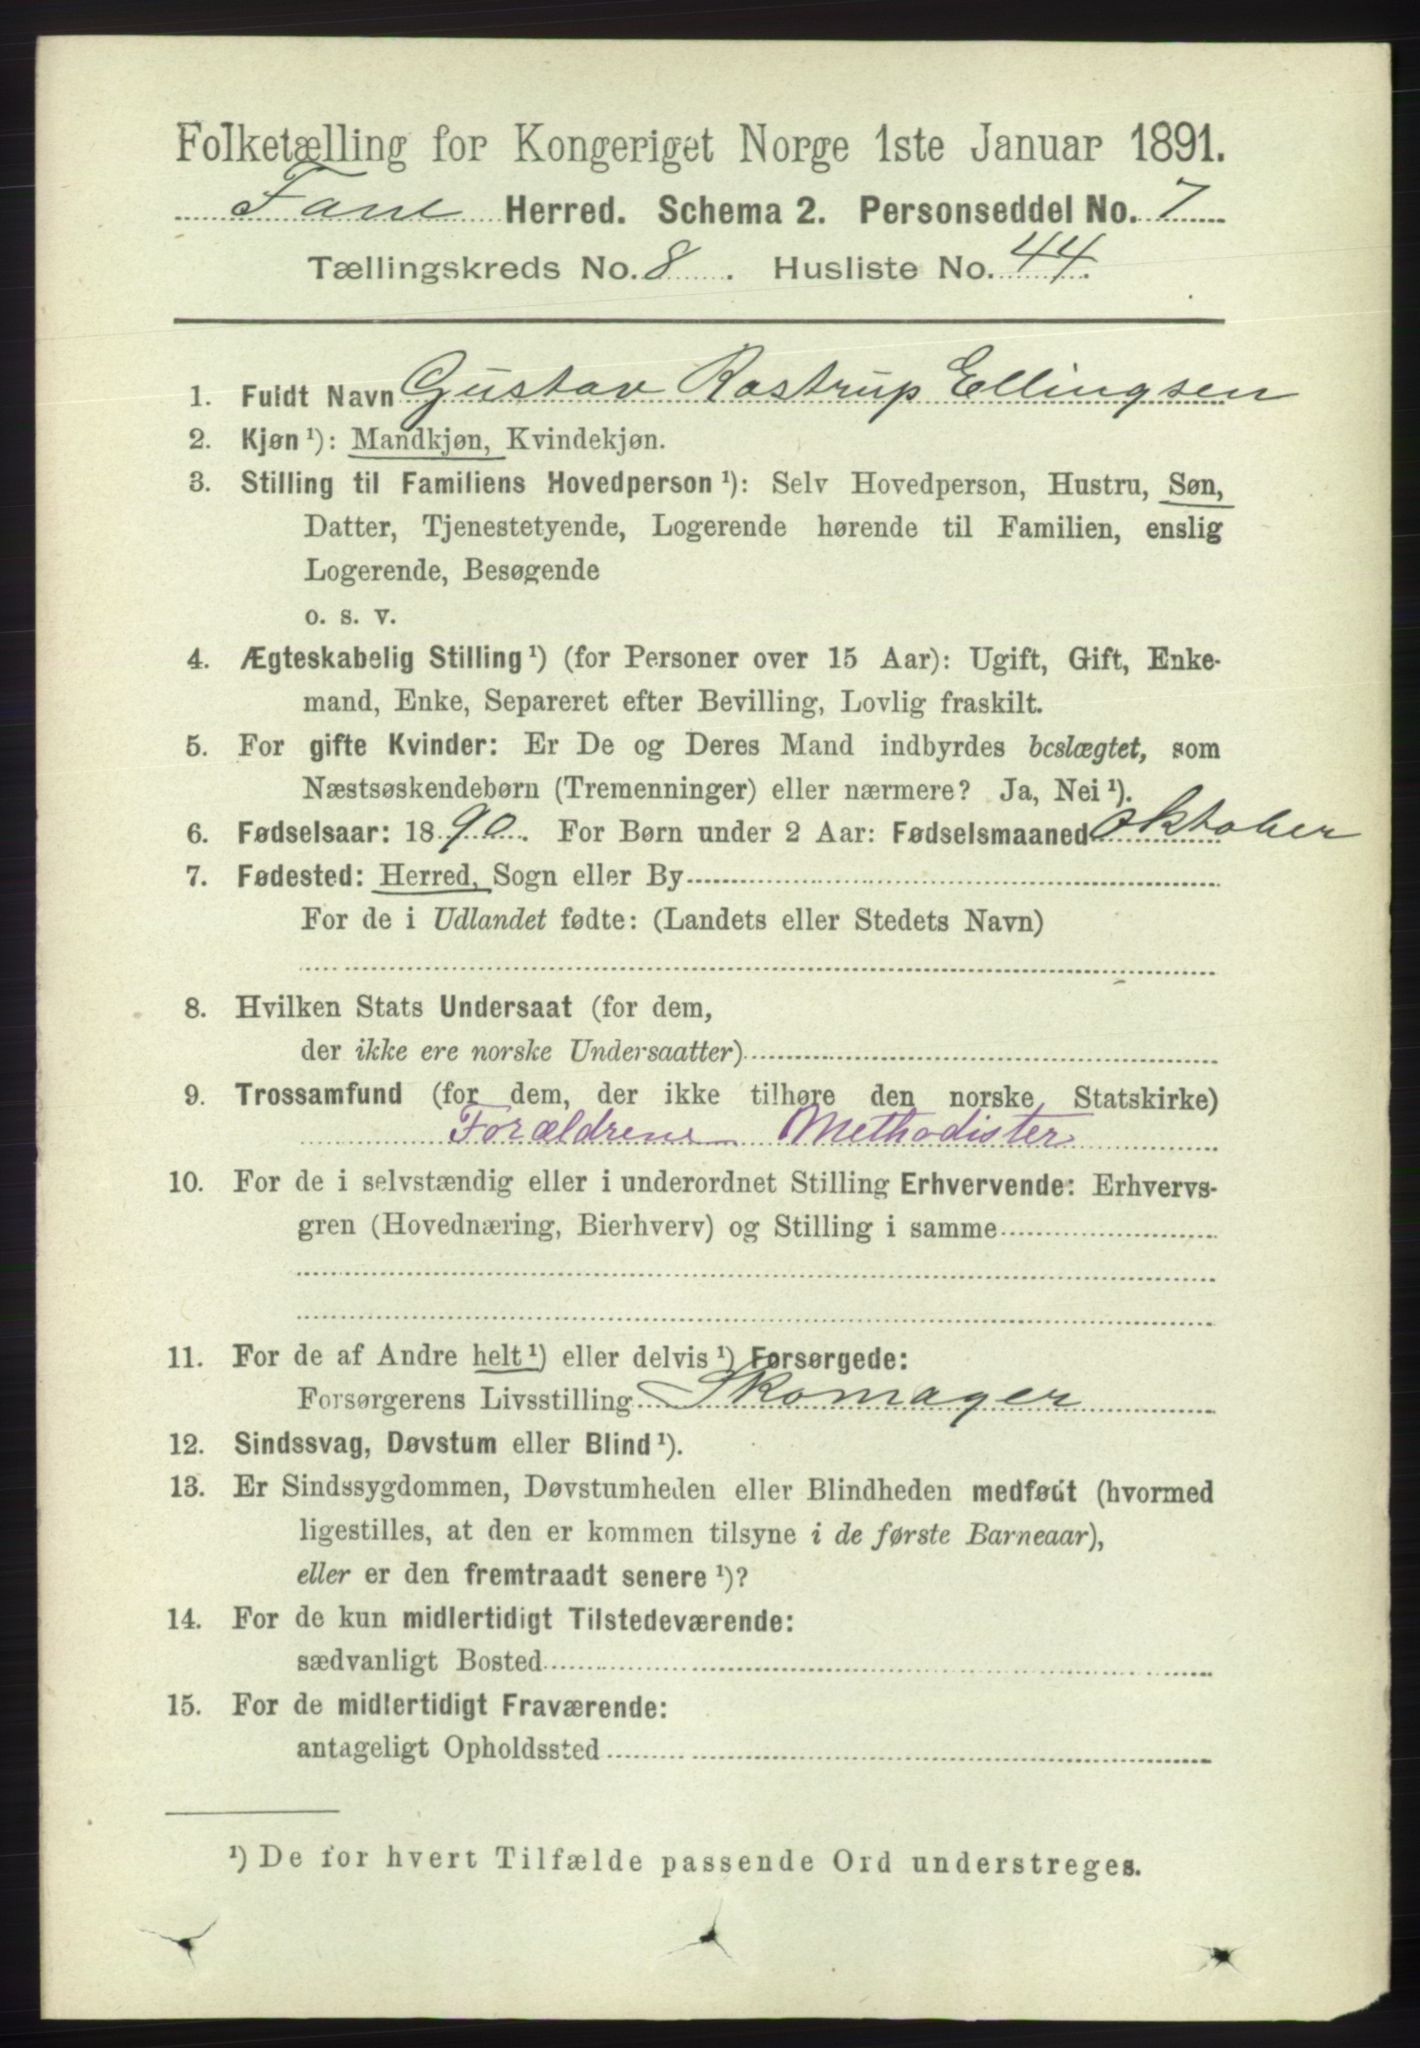 Folketælling for Kongeriget Norge 1ste Januar 1891.
Fane Herred. Schema 2. Personseddel No. 7
Tællingskreds No. 8. Husliste No. 44.
1. Fuldt Navn Gustav Rostrup Ellingsen
2. Kjøn ¹): Mandkjøn, Kvindekjøn.
3. Stilling til Familiens Hovedperson ¹): Selv Hovedperson, Hustru, Søn,
Datter, Tjenestetyende, Logerende hørende til Familien, enslig
Logerende, Besøgende
o. s. v.
4. Ægteskabelig Stilling ¹) (for Personer over 15 Aar): Ugift, Gift, Enke-
mand, Enke, Separeret efter Bevilling, Lovlig fraskilt.
5. For gifte Kvinder: Er De og Deres Mand indbyrdes beslægtet, som
Næstsøskendebørn (Tremenninger) eller nærmere? Ja, Nei ¹).
6. Fødselsaar: 1890. For Børn under 2 Aar: Fødselsmaaned Oktober
7. Fødested: Herred, Sogn eller By
For de i Udlandet fødte: (Landets eller Stedets Navn)
8. Hvilken Stats Undersaat (for dem,
der ikke ere norske Undersaatter)
9. Trossamfund (for dem, der ikke tilhøre den norske Statskirke)
Forældrene Methodister
10. For de i selvstændig eller i underordnet Stilling Erhvervende: Erhvervs-
gren (Hovednæring, Bierhverv) og Stilling i samme
11. For de af Andre helt ¹) eller delvis ¹) Forsørgede:
Forsørgerens Livsstilling Skomager
12. Sindssvag, Døvstum eller Blind ¹).
13. Er Sindssygdommen, Døvstumheden eller Blindheden medfødt (hvormed
ligestilles, at den er kommen tilsyne i de første Barneaar),
eller er den fremtraadt senere ¹)?
14. For de kun midlertidigt Tilstedeværende:
sædvanligt Bosted
15. For de midlertidigt Fraværende:
antageligt Opholdssted
¹) De for hvert Tilfælde passende Ord understreges.